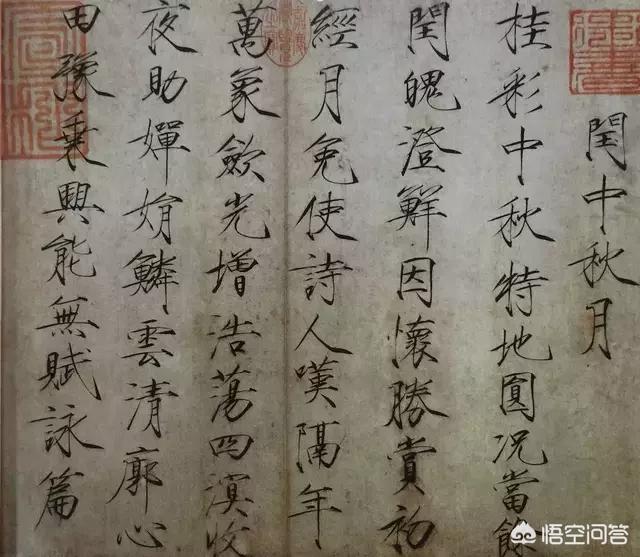 閏中秋月
桂彩中秋特地圓况當餘
閏魄澄鮮因懷勝賞初
經月免使詩人嘆隔年
萬象斂光增浩蕩四溟收
夜助嬋娟鱗雲清廓心
田豫乘興能無賦詠篇
悟空问答